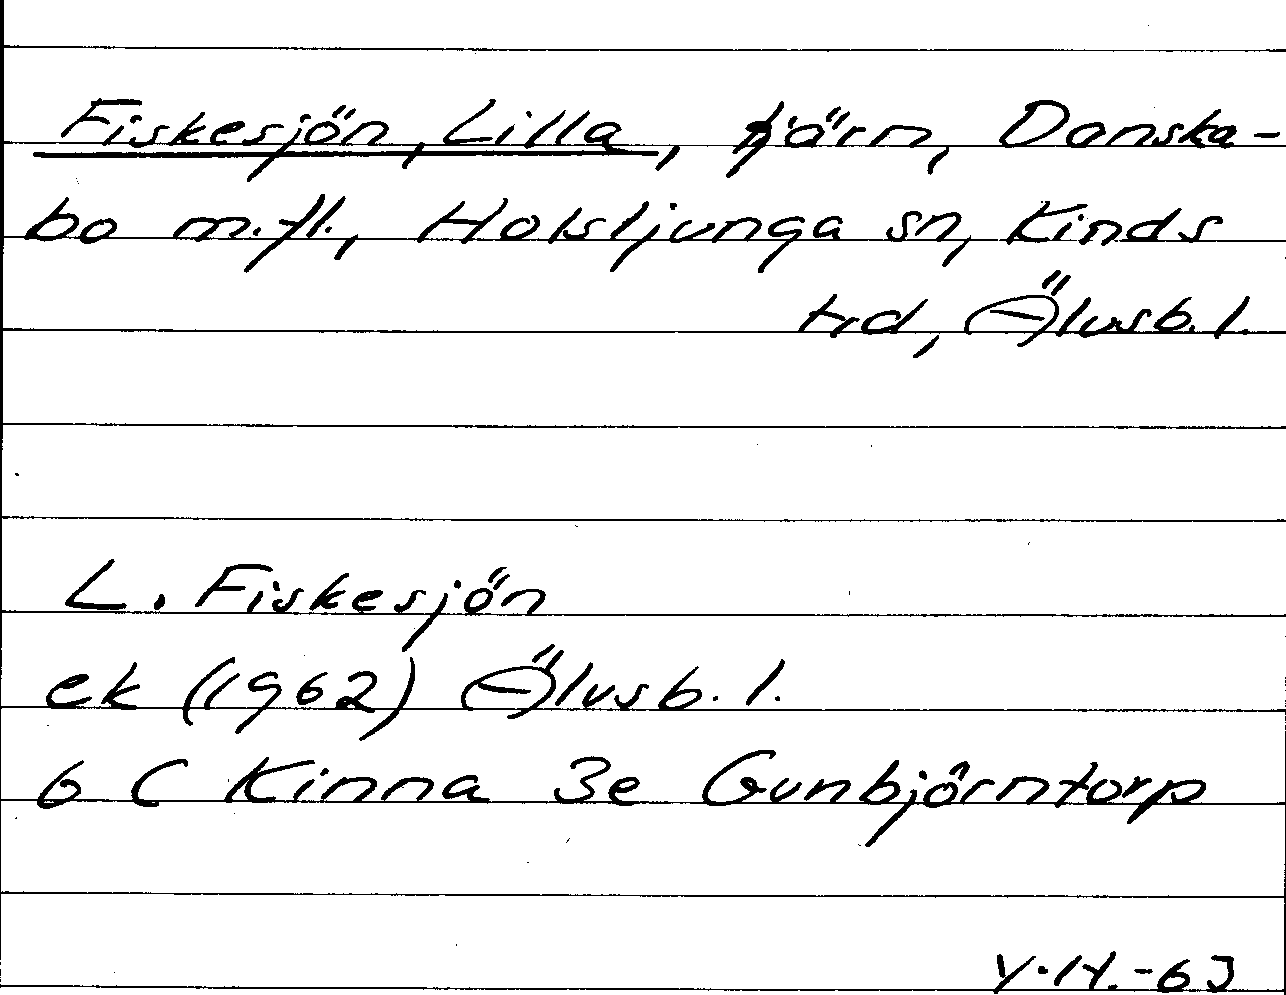 Fiskesjön, Lilla, tjärn, Danska-
bo m.fl., Holsljunga sn, Kinds
hd, Älvsb. l.
L. Fiskesjön
ek (1962) Älvsb. l.
6 C Kinna 3e Gunbjörntorp
Y.H.-63